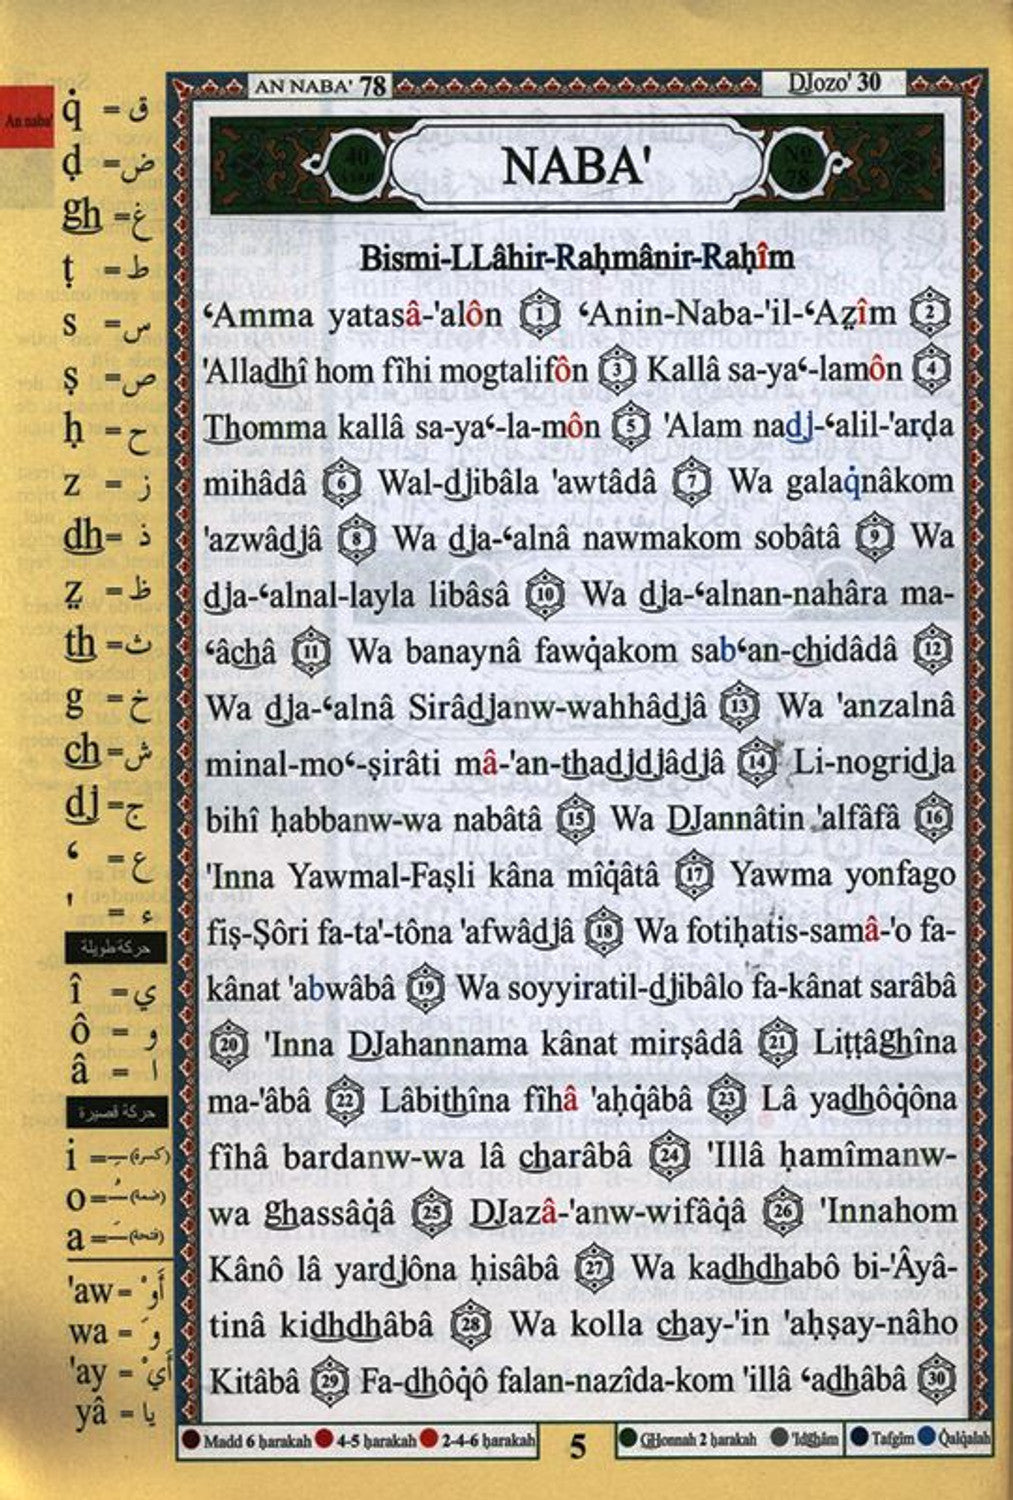 AN NABA' 78
DJozo' 30
An naba'
NABA'
40
78
Bismi-LLâhir-Raḥmânir-Raḥîm
‘Amma yatasâ-'alôn 1 ‘Anin-Naba-'il-‘Aẓîm 2
'Alladhî hom fîhi mogtalifôn 3 Kallâ sa-ya‘-lamôn 4
Thomma kallâ sa-ya‘-la-môn 5 'Alam nadj-‘alil-'arḍa
mihâdâ 6 Wal-djibâla 'awtâdâ 7 Wa galaq̇nâkom
'azwâdjâ 8 Wa dja-‘alnâ nawmakom sobâtâ 9 Wa
dja-‘alnal-layla libâsâ 10 Wa dja-‘alnan-nahâra ma-
‘âchâ 11 Wa banaynâ fawq̇akom sab‘an-chidâdâ 12
Wa dja-‘alnâ Sirâdjanw-wahhâdjâ 13 Wa 'anzalnâ
minal-mo‘-ṣirâti mâ-'an-thadjdjâdjâ 14 Li-nogridja
bihî ḥabbanw-wa nabâtâ 15 Wa DJannâtin 'alfâfâ 16
'Inna Yawmal-Faṣli kâna mîq̇âtâ 17 Yawma yonfago
fiṣ-Ṣôri fa-ta'-tôna 'afwâdjâ 18 Wa fotiḥatis-samâ-'o fa-
kânat 'abwâbâ 19 Wa soyyiratil-djibâlo fa-kânat sarâbâ
20 'Inna DJahannama kânat mirṣâdâ 21 Liṭṭâghîna
ma-'âbâ 22 Lâbithîna fîhâ 'aḥq̇âbâ 23 Lâ yadhôq̇ôna
fîhâ bardanw-wa lâ charâbâ 24 'Illâ ḥamîmanw-
wa ghassâq̇â 25 DJazâ-'anw-wifâq̇â 26 'Innahom
Kânô lâ yardjôna ḥisâbâ 27 Wa kadhdhabô bi-'Âyâ-
tinâ kidhdhâbâ 28 Wa kolla chay-'in 'aḥṣay-nâho
Kitâbâ 29 Fa-dhôq̇ô falan-nazîda-kom 'illâ ‘adhâbâ 30
q̇ = ق
ḍ = ض
gh = غ
ṭ = ط
s = س
ṣ = ص
ḥ = ح
z = ز
dh = ذ
ẓ = ظ
th = ث
g = خ
ch = ش
dj = ج
‘ = ع
' = ء
حركة طويلة
î = ي
ô = و
â = ا
حركة قصيرة
i = ـِ (كسرة)
o = ـُ (ضمة)
a = ـَ (فتحة)
'aw = أَوْ
wa = وَ
'ay = أَيْ
yâ = يا
Madd 6 ḥarakah 4-5 ḥarakah 2-4-6 ḥarakah
5
GHonnah 2 ḥarakah 'Idghâm Tafgîm Q̇alq̇alah